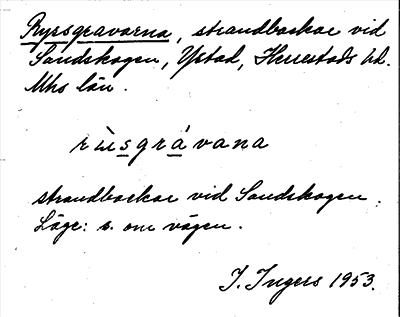 Ryssgravarna, strandbackar vid
Sandskogen, Ystad, Herrestads hd.
Mhs län.
rùsgrávana
strandbackar vid Sandskogen.
Läge: s. om vägen.
I. Ingers 1953.